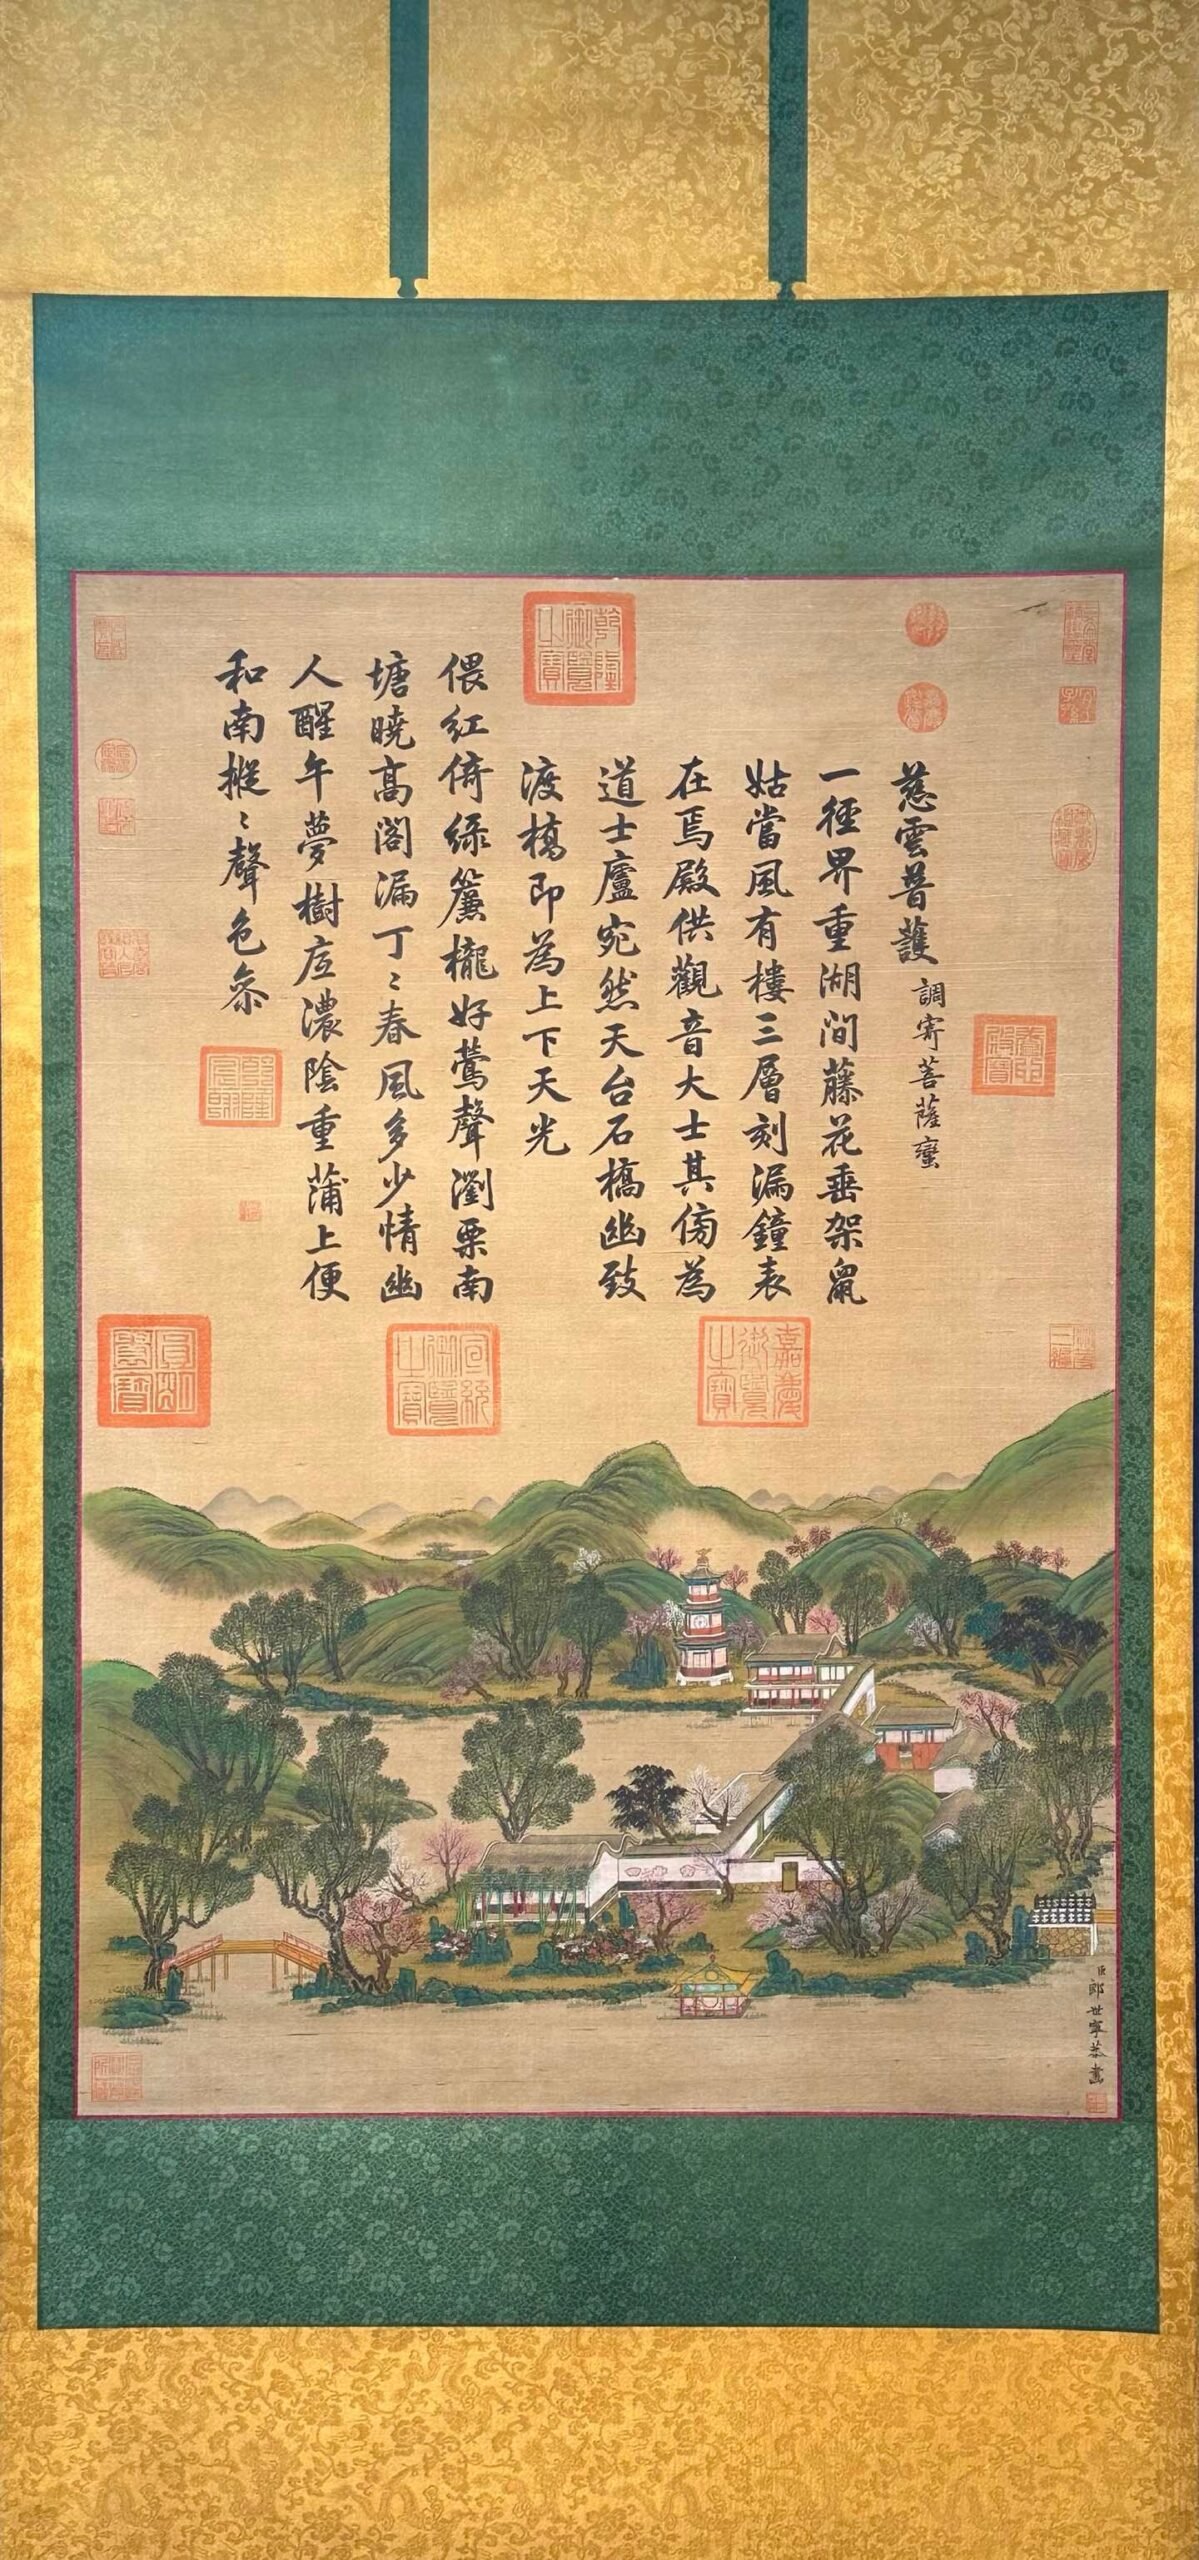 慈雲普護 調寄菩薩蠻
一徑界重湖間藤花垂架鼠
姑當風有樓三層刻漏鐘表
在焉殿供觀音大士其傍為
道士廬宛然天台石橋幽致
渡橋即為上下天光
偎紅倚綠簾櫳好鶯聲瀏栗南
塘曉高閣漏丁〻春風多少情幽
人醒午夢樹底濃陰重蒲上便
和南摐〻聲色參
臣郎世寧恭畫
乾隆御覽之寶
嘉慶御覽之寶
宣統御覽之寶